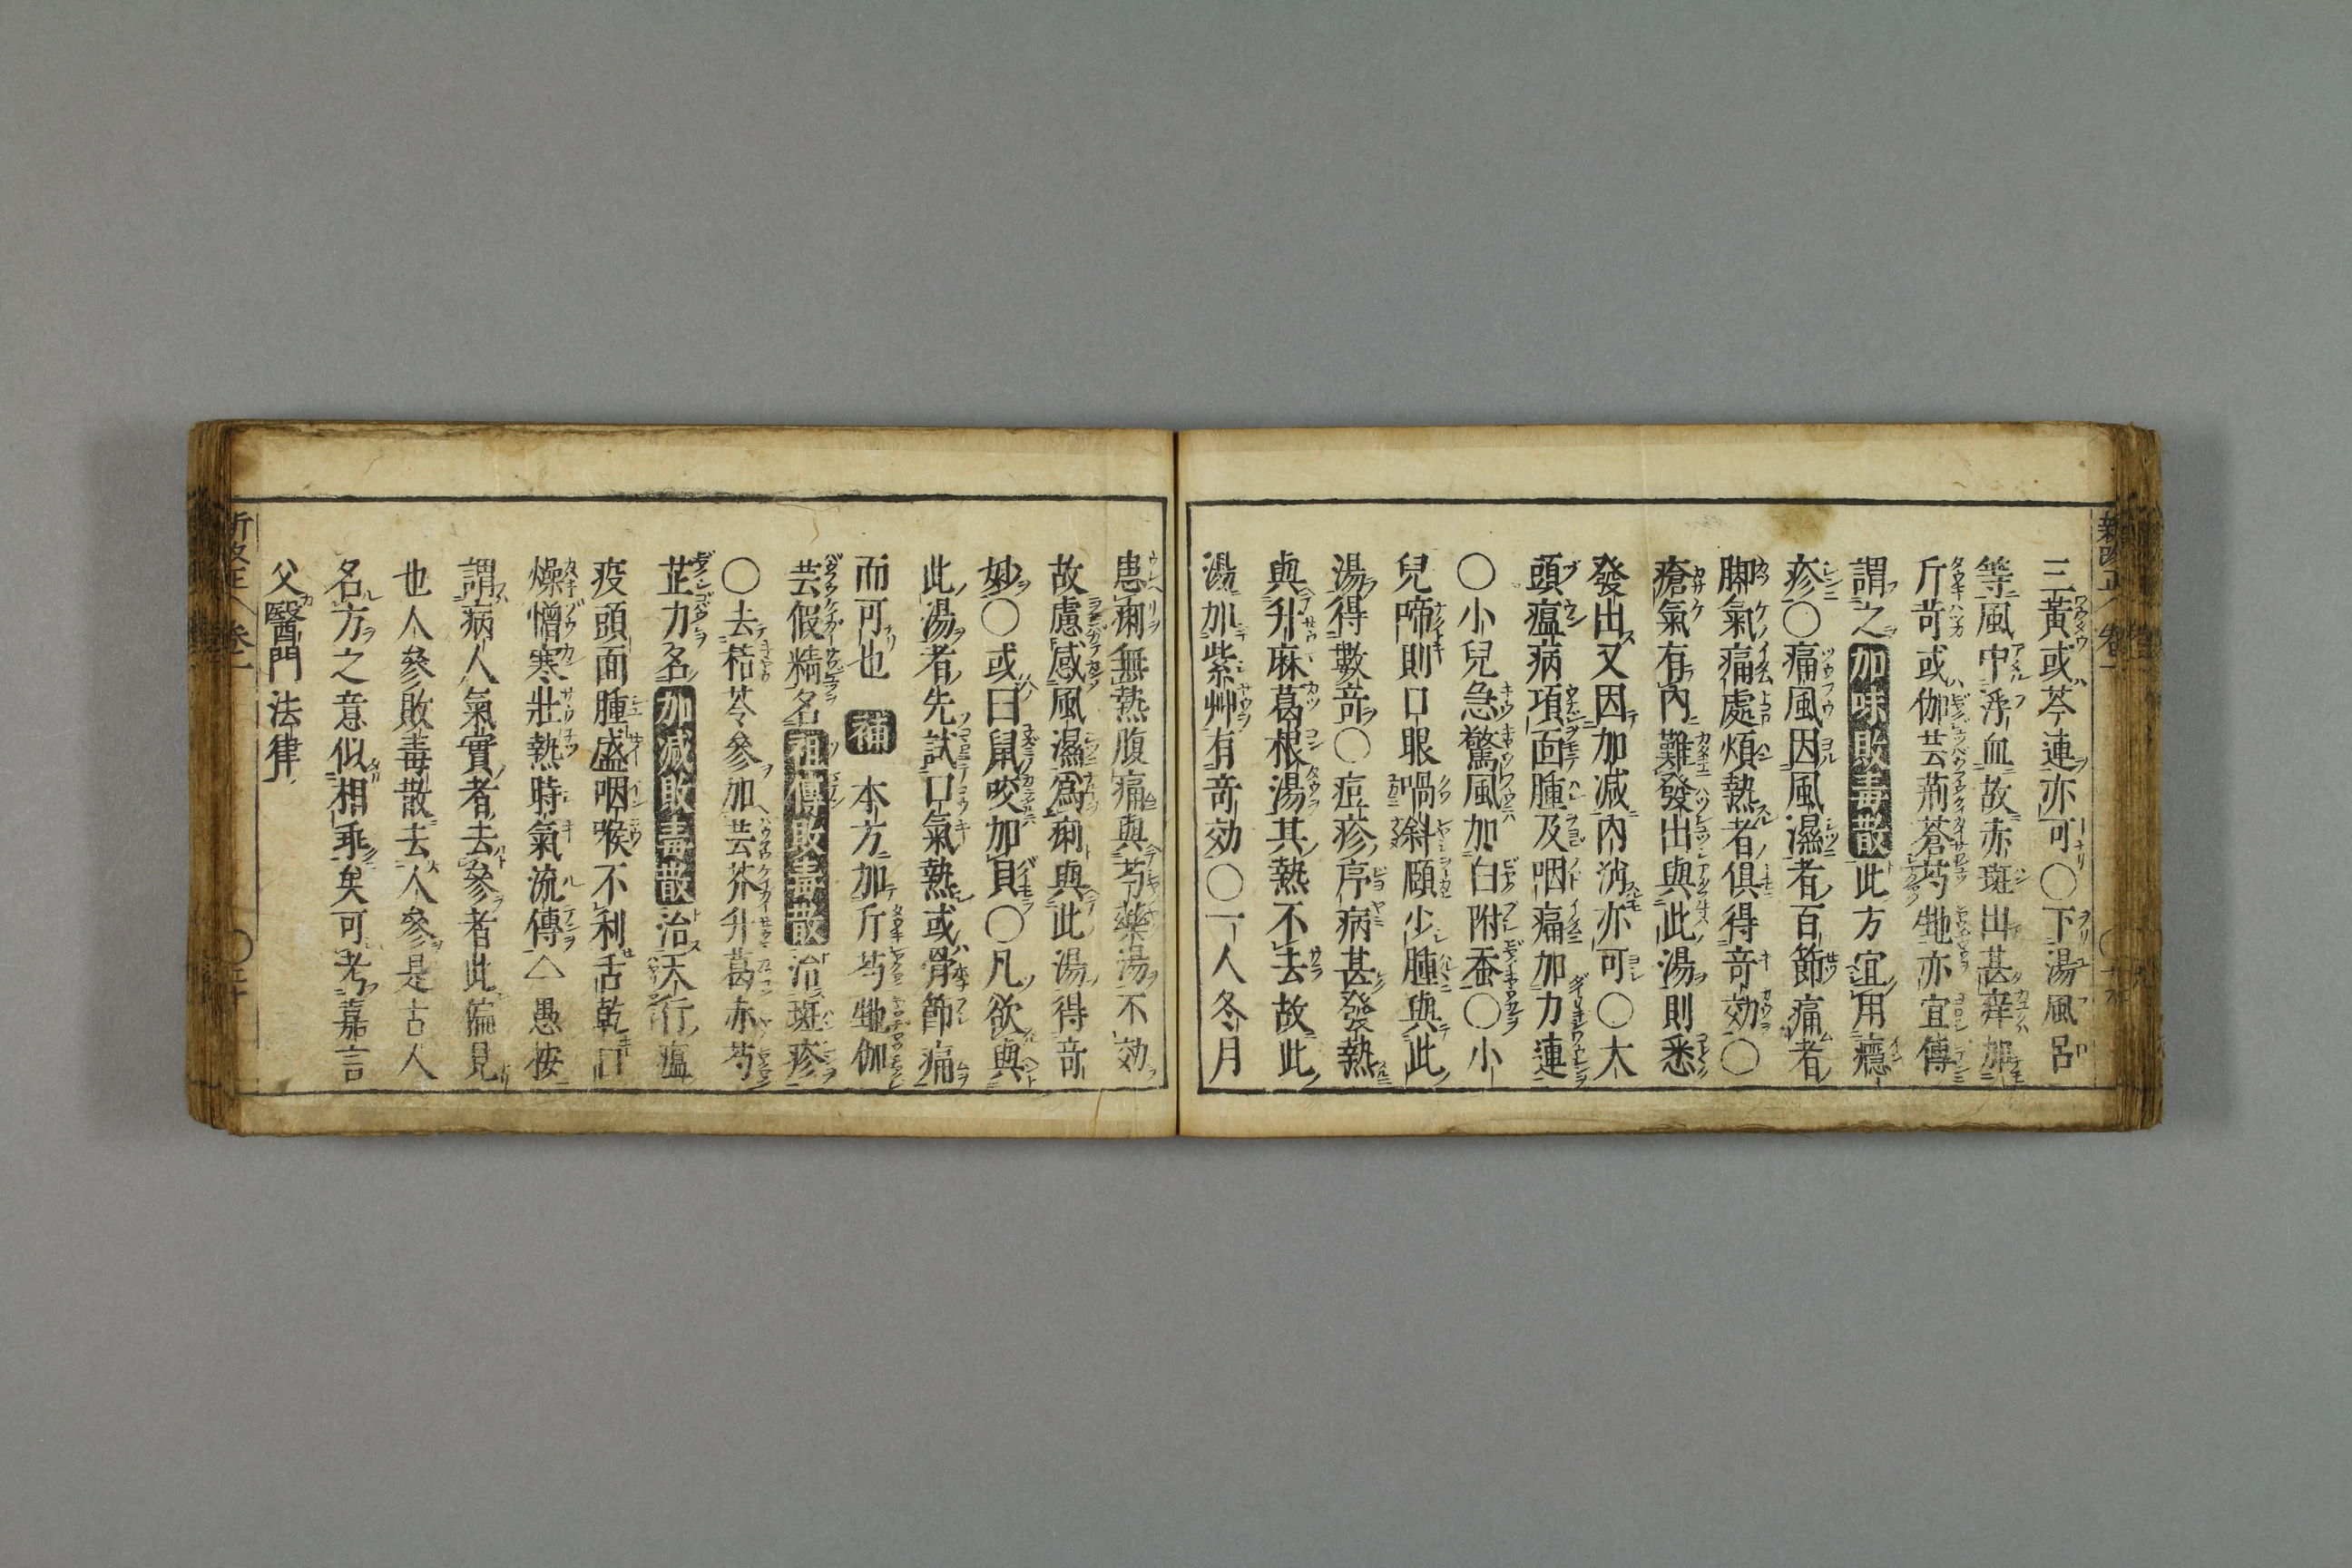 三黃或芩連亦可〇下湯風呂
等風中浮血故赤斑出甚痒加
斤苛或伽芸荊蒼芍虵亦宜傳
謂之加味敗毒散此方宜用癮
疹〇痛風因風濕者百節痛者
脚氣痛處煩熱者俱得竒効〇
瘡氣有內難發出與此湯則悉
發出又因加減內消亦可〇大
頭瘟病項面腫及咽痛加力連
〇小兒急驚風加白附蚕〇小
兒啼則口眼喎斜頤少腫與此
湯得數竒〇痘疹序病甚發熱
與升麻葛根湯其熱不去故此
湯加紫艸有竒効〇一人冬月
患痢無熱腹痛與芍藥湯不効
故慮感風濕爲痢與此湯得竒
妙〇或曰鼠咬加貝〇凡欲與
此湯者先試口氣熱或骨節痛
而可也 補 本方加斤芍虵伽
芸假精名祖傳敗毒散治斑疹
〇去桔苓參加芸芥升葛赤芍
芷力名加減敗毒散治天行瘟
疫頭面腫盛咽喉不利舌乾口
燥憎寒壯熱時氣流傳△愚按
謂病人氣實者去參者此偏見
也人參敗毒散去人參是古人
名方之意似相乖矣可考嘉言
父醫門法律